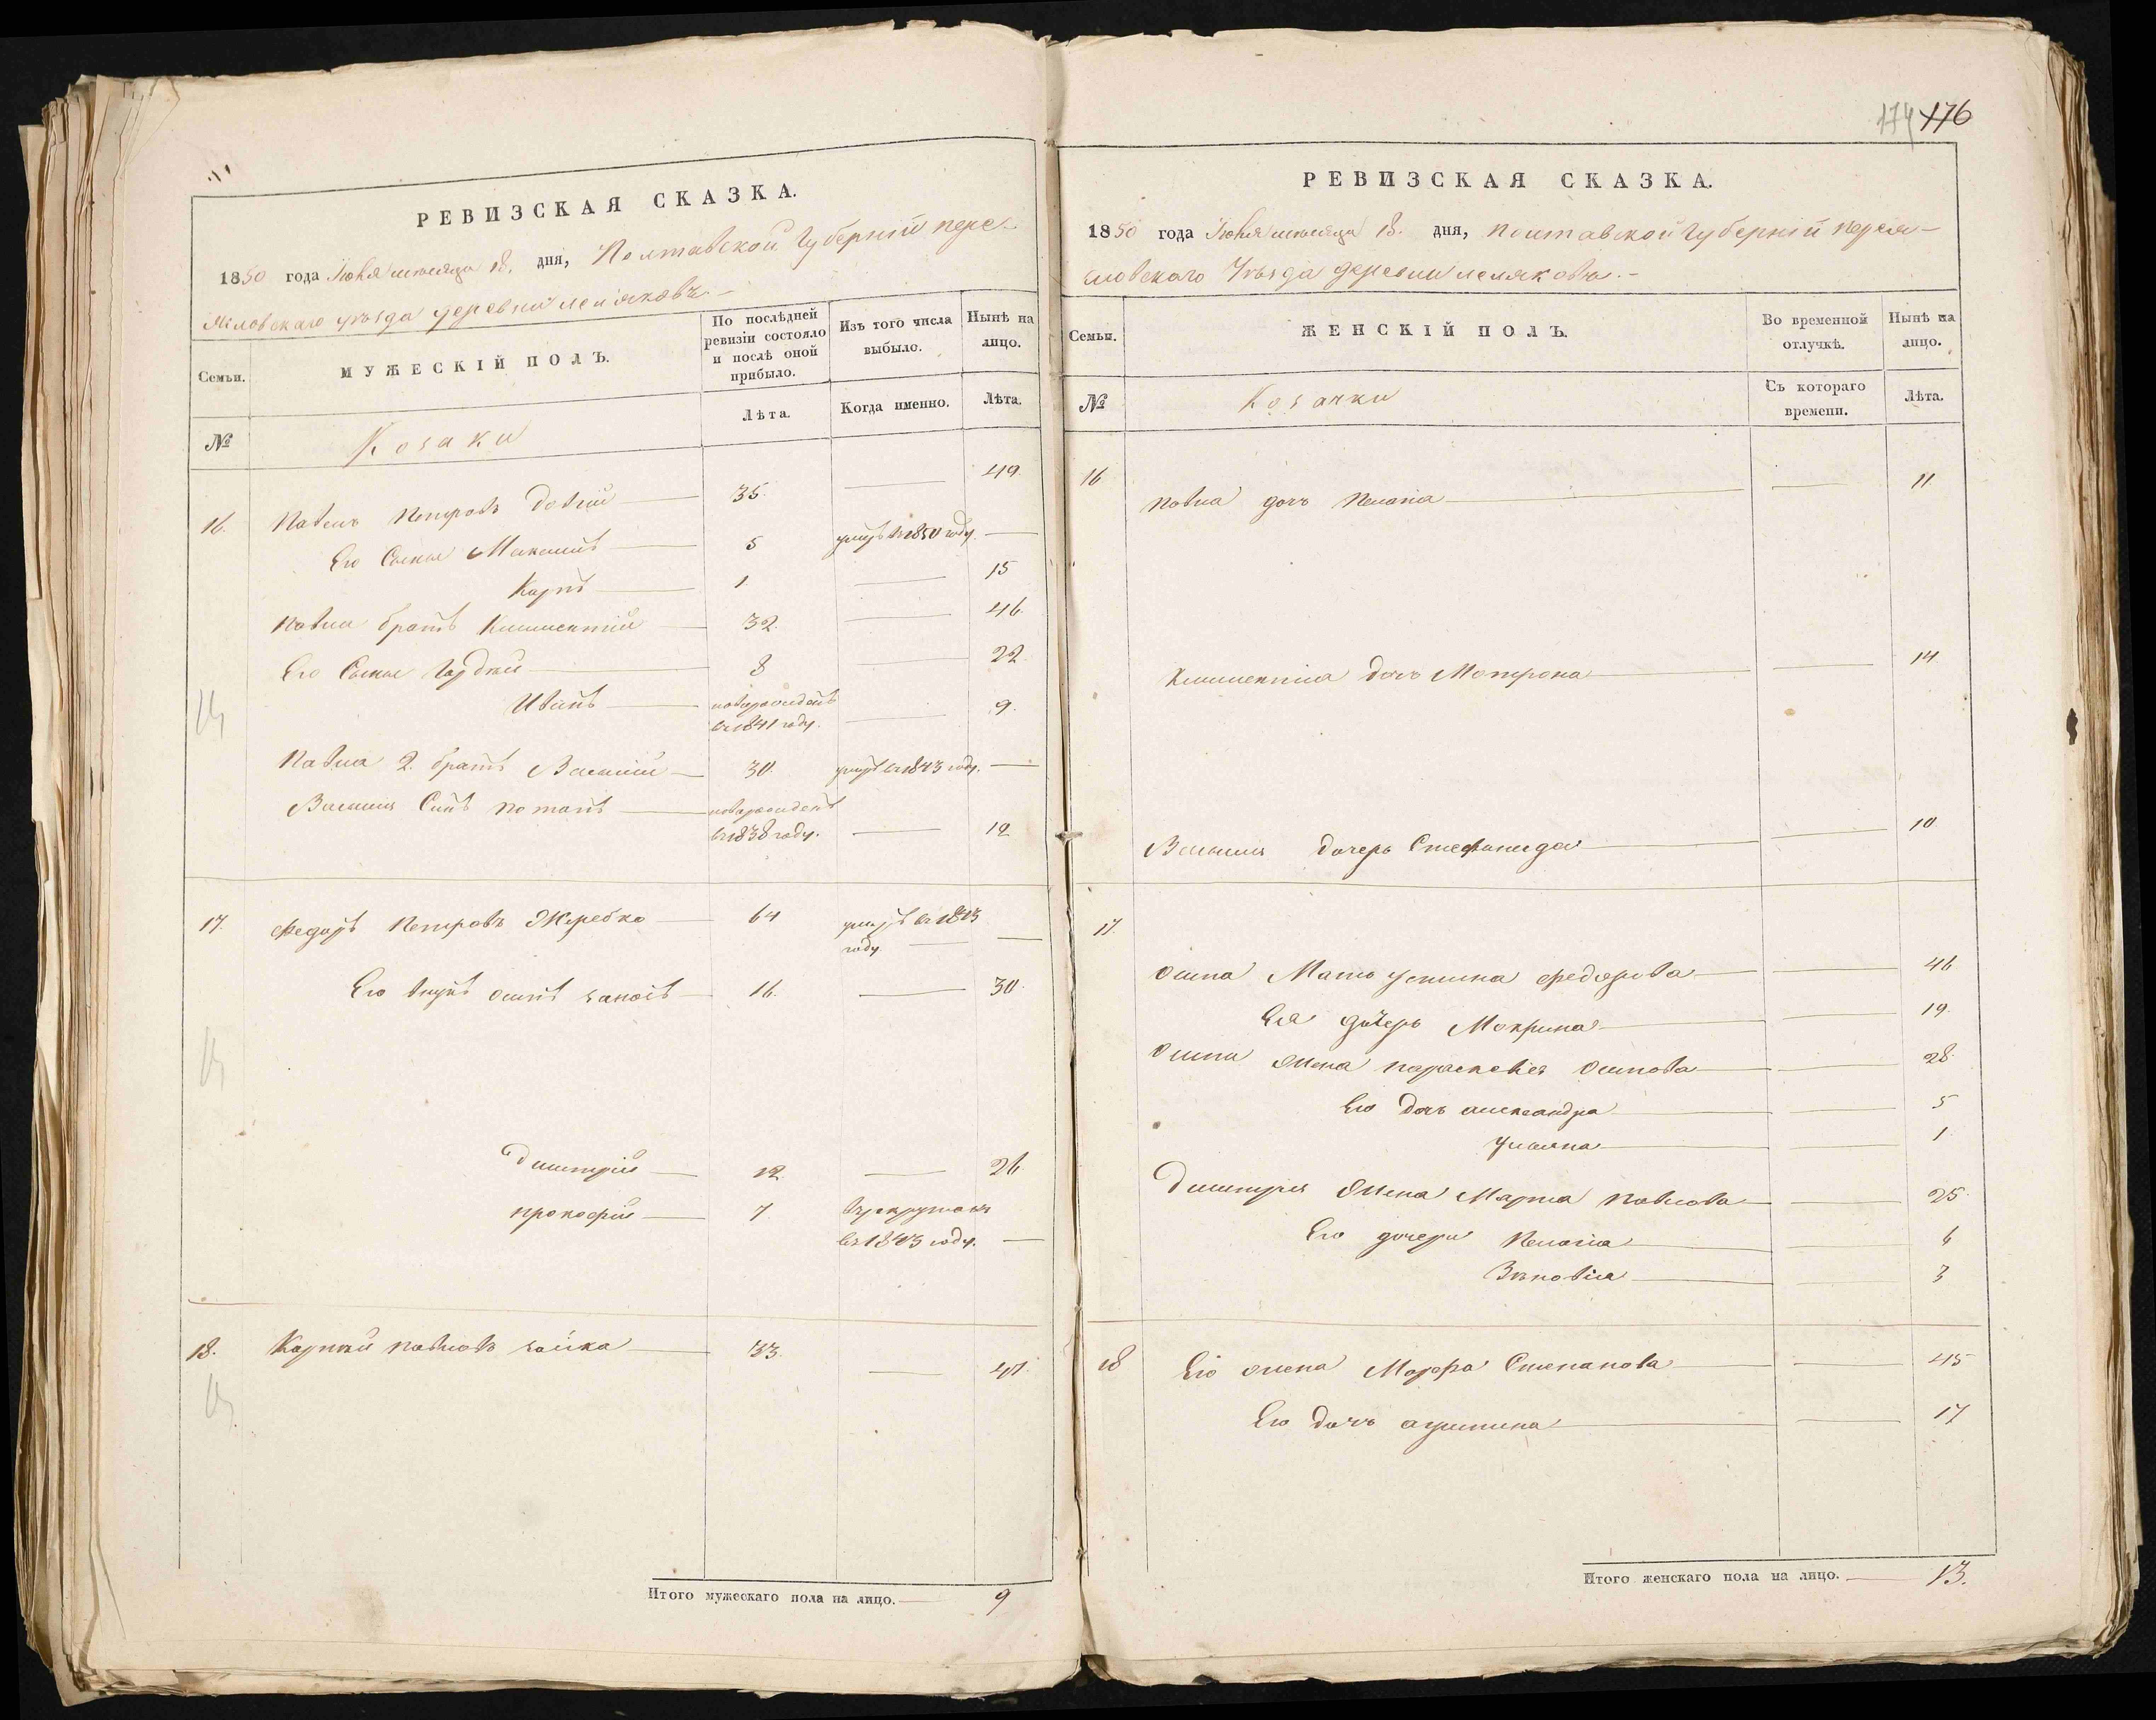 РЕВИЗСКАЯ СКАЗКА.
1850 года Июня месяца 18. дня, Полтавской Губерніи пере-
яславскаго уѣзда деревни Лемяковъ.
Семьи.
МУЖЕСКІЙ ПОЛЪ.
По послѣдней ревизіи состояло и послѣ оной прибыло.
Изъ того числа выбыло.
Нынѣ на лицо.
№
Козаки
Лѣта.
Когда именно.
Лѣта.
16. Павелъ Петровъ 35. 49.
Его Сыны Максимъ 5 умеръ въ 1850 году.
Карпъ 1. 15
Павла братъ Климентій 32. 46.
Его Сыны Гордѣй 8 22.
Иванъ новорожденъ
въ 1841 году. 9.
Павла 2. братъ Василій 30. умеръ въ 1843 году.
Василія Сынъ Потапъ новорожденъ
въ 1838 году. 12
17. Федоръ Петровъ Жеребко 64 умеръ въ 1843
году
Его внукъ Осипъ 16. 30.
Дмитрій 12. 26.
Прокофій 7. въ рекрутахъ
въ 1843 году.
18. Карпъ Павловъ Зайка 33. 47.
Итого мужескаго пола на лицо. 9
174 176
РЕВИЗСКАЯ СКАЗКА.
1850 года Июня месяца 18. дня, Полтавской Губерніи переяс-
лавскаго Уѣзда деревни Лемяковъ.
Семьи.
ЖЕНСКІЙ ПОЛЪ.
Во временной отлучкѣ.
Нынѣ на лицо.
№
Козачки
Съ котораго времени.
Лѣта.
16 Павла дочь Пелагія 11
Климентія дочь Мотрона 14
Василія дочерь Стефанида 10
17.
Осипа Мать Устина Федорова 46
Ея дочерь Мокрина 19.
Осипа жена Параскевія Осипова 28.
Его дочь Александра 5
Ульяна 1
Дмитрія жена Марѳа Павлова 25.
Его дочери Пелагія 6
Зѣновія 3
18 Его жена Марфа Степанова 45
Его дочь Агрипина 17
Итого женскаго пола на лицо. 13.